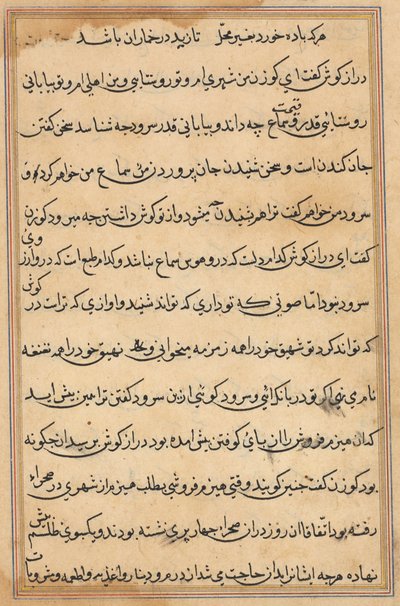 هرکه باده خورد بغیر محل تا زید در خماران باشد
دراز گوش گفت ای گوزن من شهری ام و تو روستایی و من اهلی ام و تو بیابانی
روستایی قدر و قیمت سماع چه داند و بیابانی قدر سرود چه شناسد سخن گفتن
جان کندن است و سخن شنیدن جان پروردن من سماع من خواهم کرد و
سرود من خواهم گفت ترا هم شنیدن چه میشود و از تو گوش داشتن چه میرود گوزن
گفت ای دراز گوش کدام دلست که درو هوس سماع نباشد و کدام طبع است که درو آرزوی
سرود بنود اما صوتی که تو داری که تواند شنید و آوازی که تراست در گوش
که تواند کرد تو شهق خود را همه زمزمه میخوانی و نهیق خود را همه نغنغه
نام می نهی اگر تو در بانک آئی و سرود گوئی از این سرود گفتن ترا همین پیش آید
که آن هیزم فروش را از پای کوفتن پیش آمده بود دراز گوش پرسید آن چگونه
بود گوزن گفت چنین گویند وقتی هیزم فروشی بطلب هیزم از شهری در صحراء
رفته بود اتفاقا آن روز در آن صحراء چهار پری نشسته بودند و یک سبوی طلسم پیش
نهاده هر چه ایشانرا بدان حاجت می شد از درم و دینار و اغذیه و اطعمه و شروبات